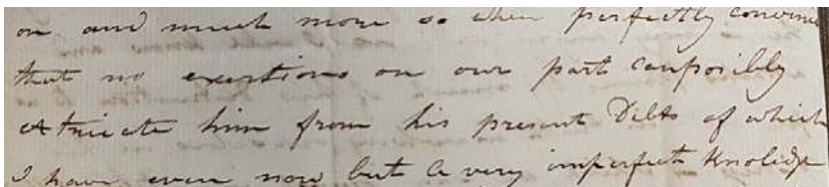 on and much more so when perfectly convinced
that no exertions on our part can posibly
extricate him from his present Debts of which
I have even now but a very imperfect Knolidge